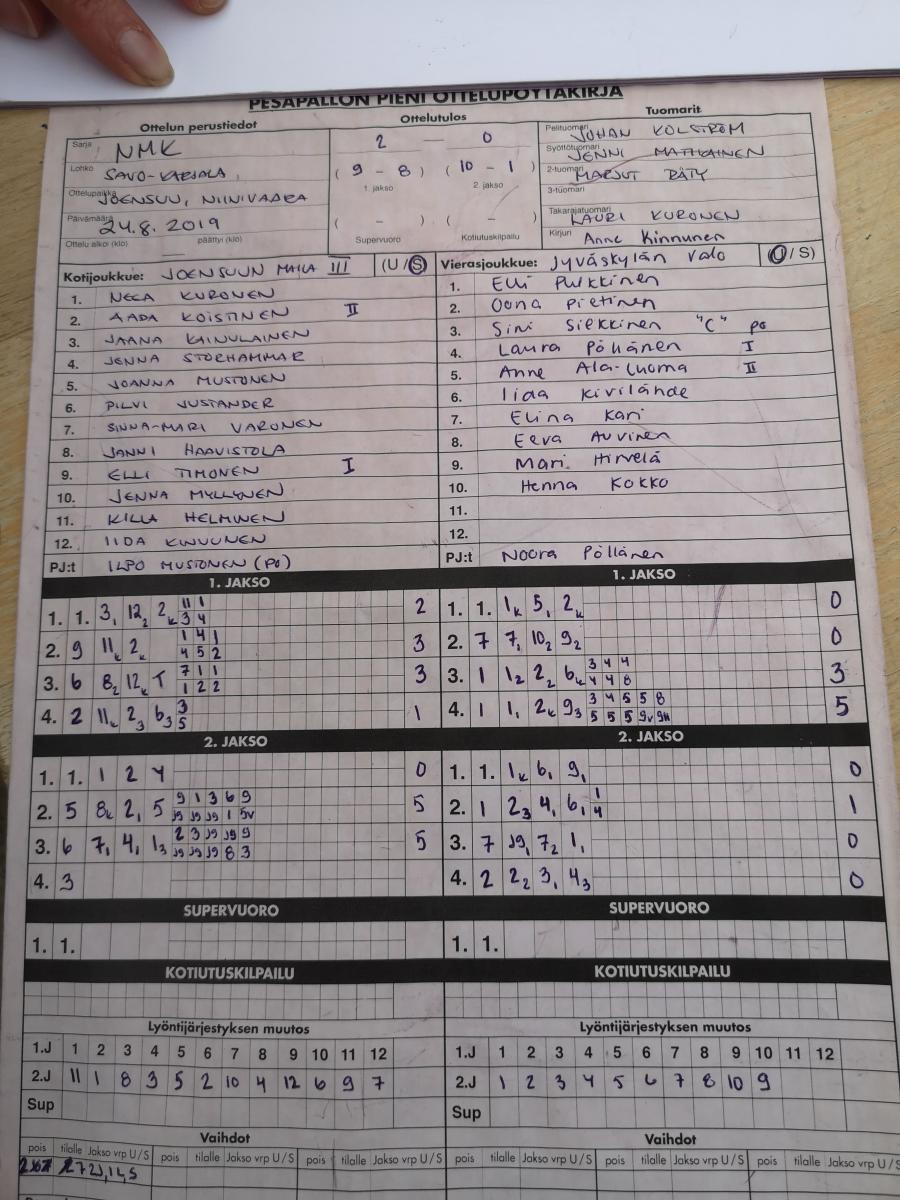 PESÄPALLON PIENI OTTELUPÖYTÄKIRJA
Ottelun perustiedot
Sarja NMK
Lohko SAVO-KARJALA
Ottelupaikka JOENSUU, NIINIVAARA
Päivämäärä 24.8. 2019
Ottelu alkoi (klo) päättyi (klo)
Ottelutulos
2 — 0
( 9 - 8 ) ( 10 - 1 )
1. jakso 2. jakso
( - ) ( - )
Supervuoro Kotiutuskilpailu
Tuomarit
Pelituomari JOHAN KOLSTRÖM
Syöttötuomari JENNI MATIKAINEN
2-tuomari MARJUT RÄTY
3-tuomari
Takarajatuomari LAURI KURONEN
Kirjuri Anne Kinnunen
Kotijoukkue: JOENSUUN MAILA III (U/S)
1. NEEA KURONEN
2. AADA KOISTINEN II
3. JAANA KAINULAINEN
4. JENNA STORHAMMAR
5. JOANNA MUSTONEN
6. PILVI JUSTANDER
7. SINNA-MARI VARONEN
8. JANNI HAAVISTOLA
9. ELLI TIMONEN I
10. JENNA MYLLYNEN
11. KILLA HELMINEN
12. IIDA KINNUNEN
PJ:t ILPO MUSTONEN (PO)
Vierasjoukkue: Jyväskylän Valo (U/S)
1. Elli Pulkkinen
2. Oona Pietinen
3. Sini Siekkinen "C" po
4. Laura Pöllänen I
5. Anne Ala-Luoma II
6. Iida Kivilahde
7. Elina Kari
8. Eeva Auvinen
9. Mari Hirvelä
10. Henna Kokko
11.
12.
PJ:t Noora Pöllänen
1. JAKSO
1. 1. 3₁ 12₂ 2ₖ 11 1 2
3 4
2. 9 11ₖ 2ₖ 1 4 1 3
4 5 2
3. 6 8₂ 12ₖ T 7 1 1 3
1 2 2
4. 2 11ₖ 2₃ 6₃ 3 1
5
1. JAKSO
1. 1. 1ₖ 5₁ 2ₖ 0
2. 7 7₁ 10₂ 9₂ 0
3. 1 1₂ 2₂ 6ₖ 3 4 4 3
4 4 8
4. 1 1₁ 2ₖ 9₃ 3 4 5 5 8 5
5 5 5 9v 9k
2. JAKSO
1. 1. 1 2 4 0
2. 5 8ₖ 2₁ 5 9 1 3 6 9 5
J9 J9 J9 1 5v
3. 6 7₁ 4₁ 1₃ 2 3 J9 J9 9 5
J9 J9 J9 8 3
4. 3
2. JAKSO
1. 1. 1ₖ 6₁ 9₁ 0
2. 1 2₃ 4₁ 6₁ 1 1
4
3. 7 J9₁ 7₂ 1₁ 0
4. 2 2₂ 3₁ 4₃ 0
SUPERVUORO
1. 1.
SUPERVUORO
1. 1.
KOTIUTUSKILPAILU
KOTIUTUSKILPAILU
Lyöntijärjestyksen muutos
1.J 1 2 3 4 5 6 7 8 9 10 11 12
2.J 11 1 8 3 5 2 10 4 12 6 9 7
Sup
Lyöntijärjestyksen muutos
1.J 1 2 3 4 5 6 7 8 9 10 11 12
2.J 1 2 3 4 5 6 7 8 10 9
Sup
Vaihdot
pois tilalle Jakso vrp U/S pois tilalle Jakso vrp U/S pois tilalle Jakso vrp U/S
Vaihdot
pois tilalle Jakso vrp U/S pois tilalle Jakso vrp U/S pois tilalle Jakso vrp U/S